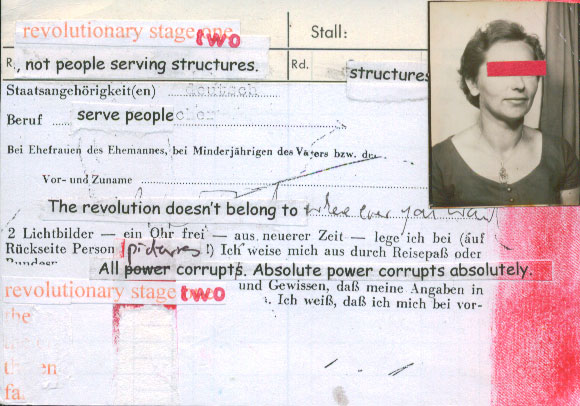 revolutionary stage one two
Stall:
R. , not people serving structures.
Rd. structures
Staatsangehörigkeit(en) deutsch
Beruf serve people
Bei Ehefrauen des Ehemannes, bei Minderjährigen des Vaters bzw. der
Vor- und Zuname
The revolution doesn't belong to
2 Lichtbilder — ein Ohr frei — aus neuerer Zeit — lege ich bei (auf
Rückseite Person pictures !) Ich weise mich aus durch Reisepaß oder
All power corrupts. Absolute power corrupts absolutely.
revolutionary stage two
und Gewissen, daß meine Angaben in
. Ich weiß, daß ich mich bei vor-
the
en
fa